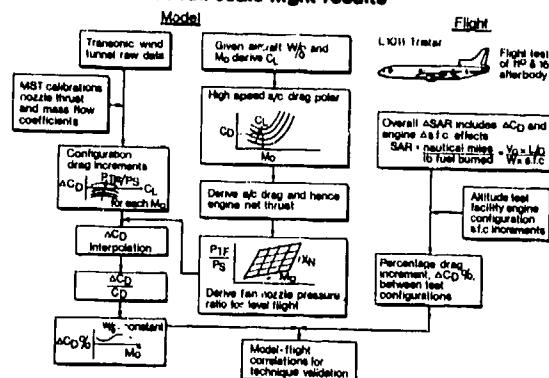 full scale flight results
Model
Flight
Transonic wind
tunnel raw data
MST calibrations
nozzle thrust
and mass flow
coefficients
Configuration
drag increments
PTF/PS
ΔCD
CL
for each MO
ΔCD
Interpolation
ΔCD
CD
ΔCD%
constant
MO
Given aircraft W/δ and
MO derive CL
High speed a/c drag polar
CL
CD
MO
Derive a/c drag and hence
engine net thrust
PTF
PS
XN
MO
Derive fan nozzle pressure
ratio for level flight
Model-flight
correlations for
technique validation
L1011 Tristar
Flight test
of 11° & 16°
afterbody
Overall ΔSAR includes ΔCD and
engine Δs.f.c effects
SAR = nautical miles = VO × L/D
lb fuel burned W × s.f.c
Altitude test
facility engine
configuration
s.f.c increments
Percentage drag
increment, ΔCD%,
between test
configurations